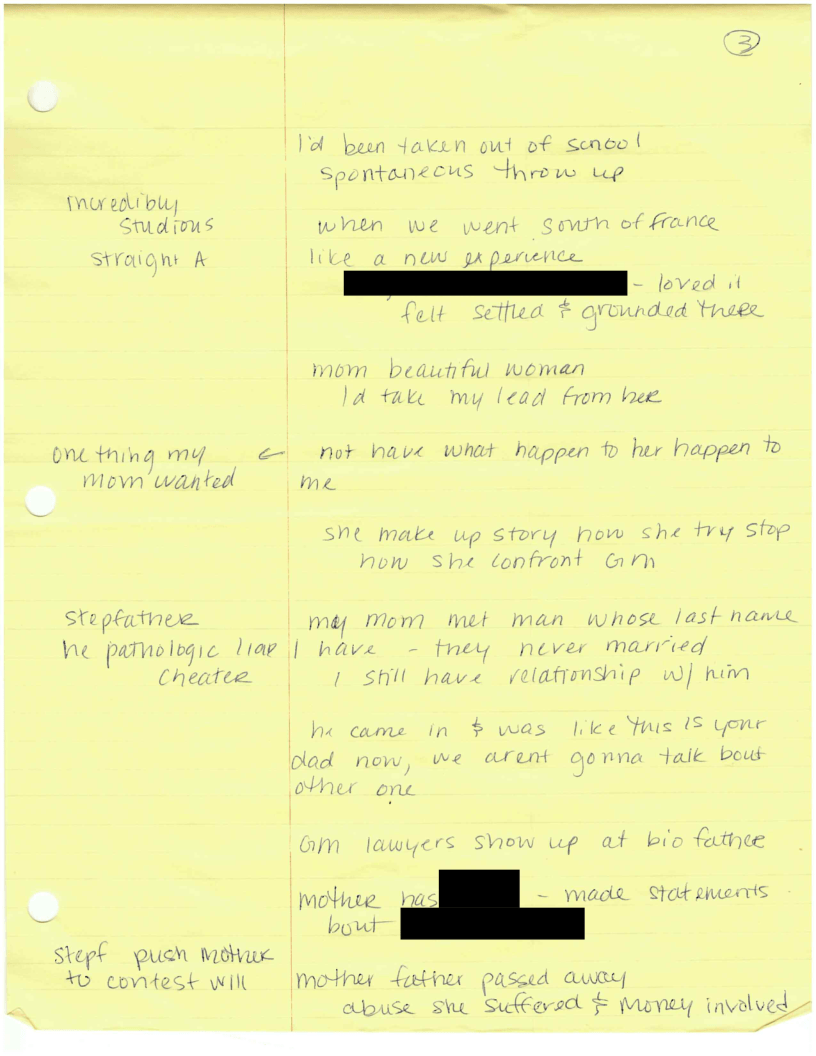 3
I'd been taken out of school
spontaneous throw up
Incredibly
studious
straight A
when we went south of france
like a new experience
- loved it
felt settled & grounded there
mom beautiful woman
I'd take my lead from her
one thing my
mom wanted
← not have what happen to her happen to
me
she make up story how she try stop
how she confront GM
stepfather
he pathologic liar
cheater
my mom met man whose last name
I have - they never married
I still have relationship w/ him
he came in & was like this is your
dad now, we arent gonna talk bout
other one
GM lawyers show up at bio father
mother has - made statements
bout
stepf push mother
to contest will
mother father passed away
abuse she suffered & money involved